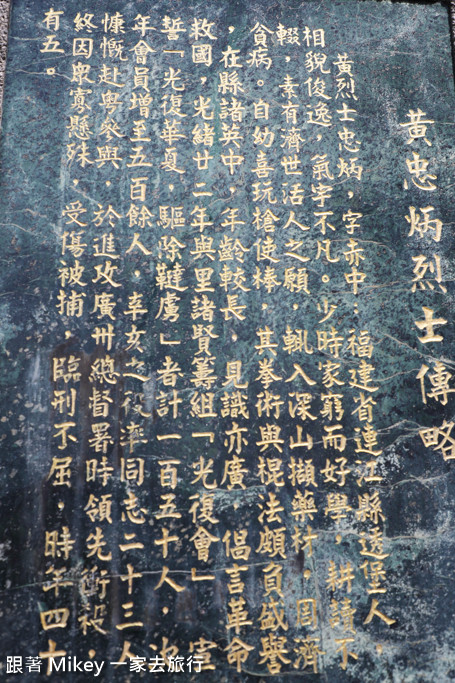 黃忠炳烈士傳略
黃烈士忠炳，字赤中：福建省連江縣透堡人，
相貌俊逸，氣宇不凡。少時家窮而好學，耕讀不
輟，素有濟世活人之願，輒入深山擷藥材，周濟
貧病。自幼喜玩槍使棒，其拳術與棍法頗負盛譽
，在縣諸英中，年齡較長，見識亦廣，倡言革命
救國，光緒廿二年與里諸賢籌組「光復會」宣
誓「光復華夏，驅除韃虜」者計一百五十人，
年會員增至五百餘人，辛亥之役率同志二十三人
慷慨赴粵參與，於進攻廣州總督署時領先衝殺，
終因眾寡懸殊，受傷被捕，臨刑不屈，時年四十
有五。
跟著 Mikey 一家去旅行